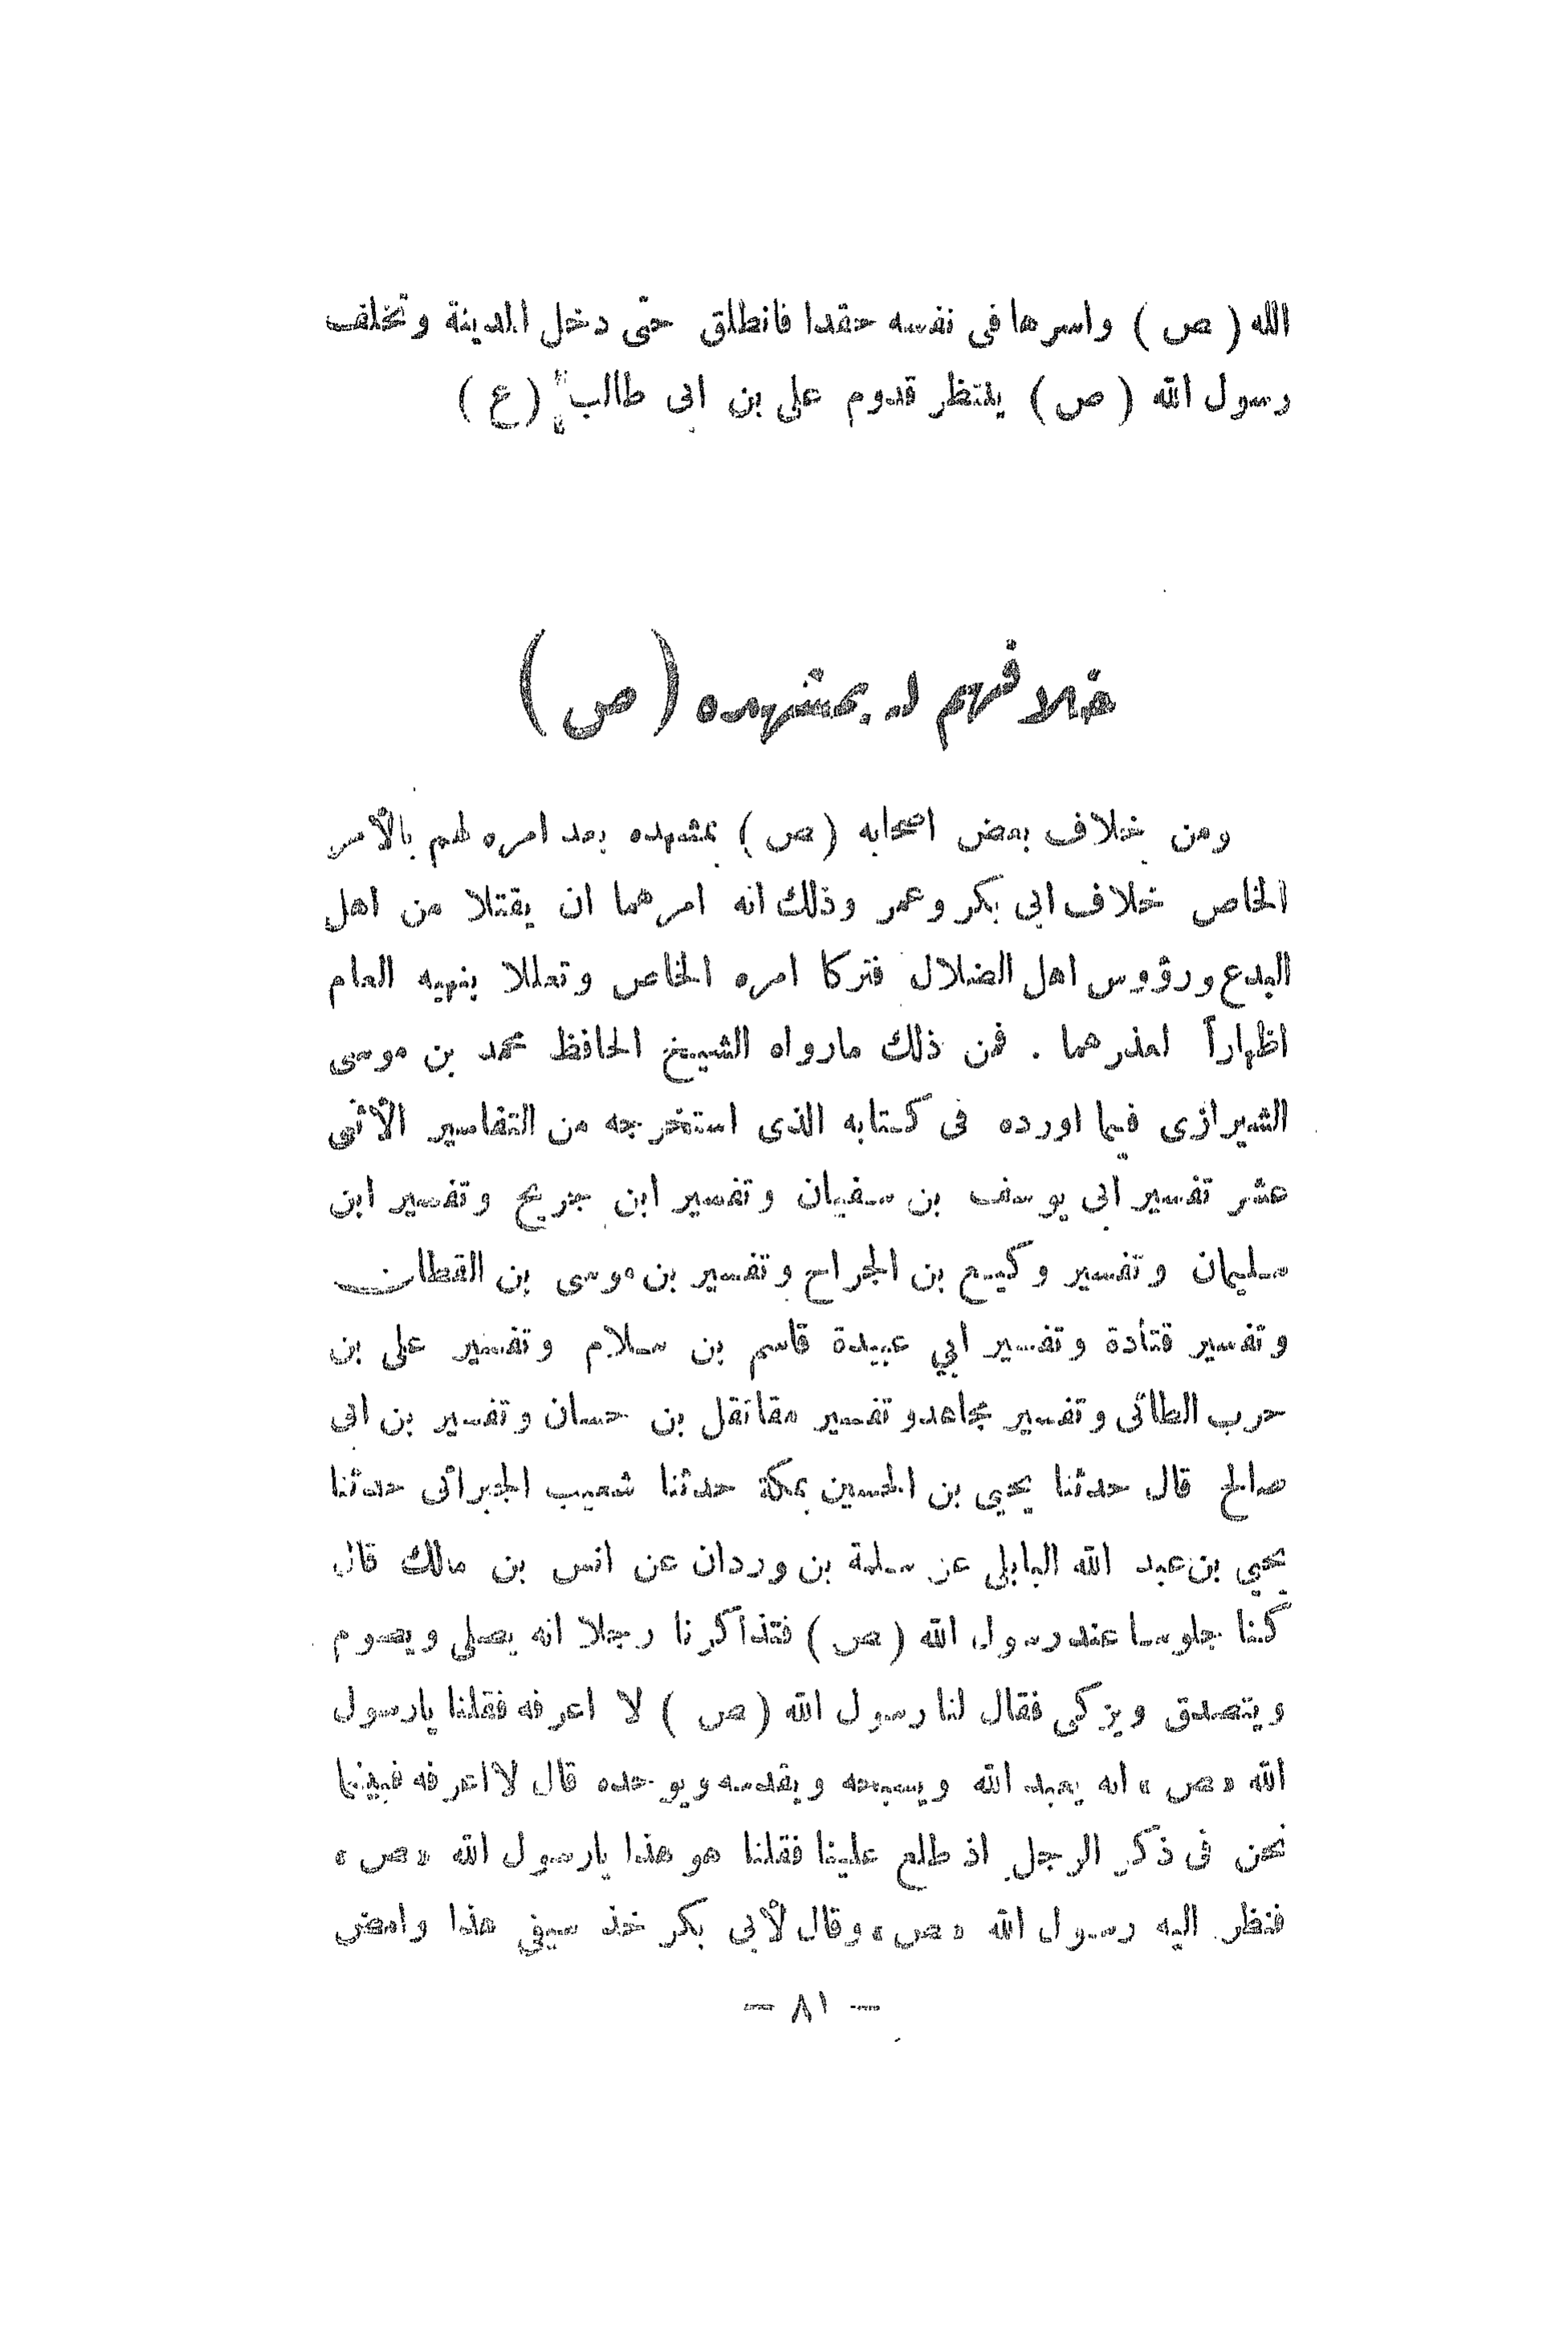 الله ( ص ) واسرها فى نفسه حقدا فانطلق حتى دخل المدينة وتخلف
رسول الله ( ص ) ينتظر قدوم على بن ابى طالب ( ع )
خلافهم له بمشهده ( ص )
ومن خلاف بعض اصحابه ( ص ) بمشهده بعد امره لهم بالأمر
الخاص خلاف ابى بكر وعمر وذلك انه امرهما ان يقتلا من اهل
البدع ورؤوس اهل الضلال فتركا امره الخاص وتعللا بنهيه العام
اظهاراً لعذرهما . فمن ذلك مارواه الشيخ الحافظ محمد بن موسى
الشيرازى فيما اورده فى كتابه الذى استخرجه من التفاسير الأثنى
عشر تفسير ابى يوسف بن سفيان وتفسير ابن جريح وتفسير ابن
سليمان وتفسير وكيع بن الجراح وتفسير بن موسى بن القطان
وتفسير قتادة وتفسير أبي عبيدة قاسم بن سلام وتفسير على بن
حرب الطائى وتفسير مجاهد وتفسير مقانقل بن حسان وتفسير بن ابى
صالح قال حدثنا يحيى بن الحسين بمكة حدثنا شعيب الجبرائى حدثنا
يحيى بن عبد الله البابلى عن سلمة بن وردان عن انس بن مالك قال
كنا جلوسا عند رسول الله ( ص ) فتذاكرنا رجلا انه يصلى ويصوم
ويتصدق ويزكى فقال لنا رسول الله ( ص ) لا اعرفه فقلنا يارسول
الله «ص» انه يعبد الله ويسبحه ويقدسه ويوحده قال لا اعرفه فبينما
نحن فى ذكر الرجل اذ طلع علينا فقلنا هو هذا يارسول الله «ص»
فنظر اليه رسول الله «ص» وقال لأبى بكر خذ سيفي هذا وامض
— ٨١ —